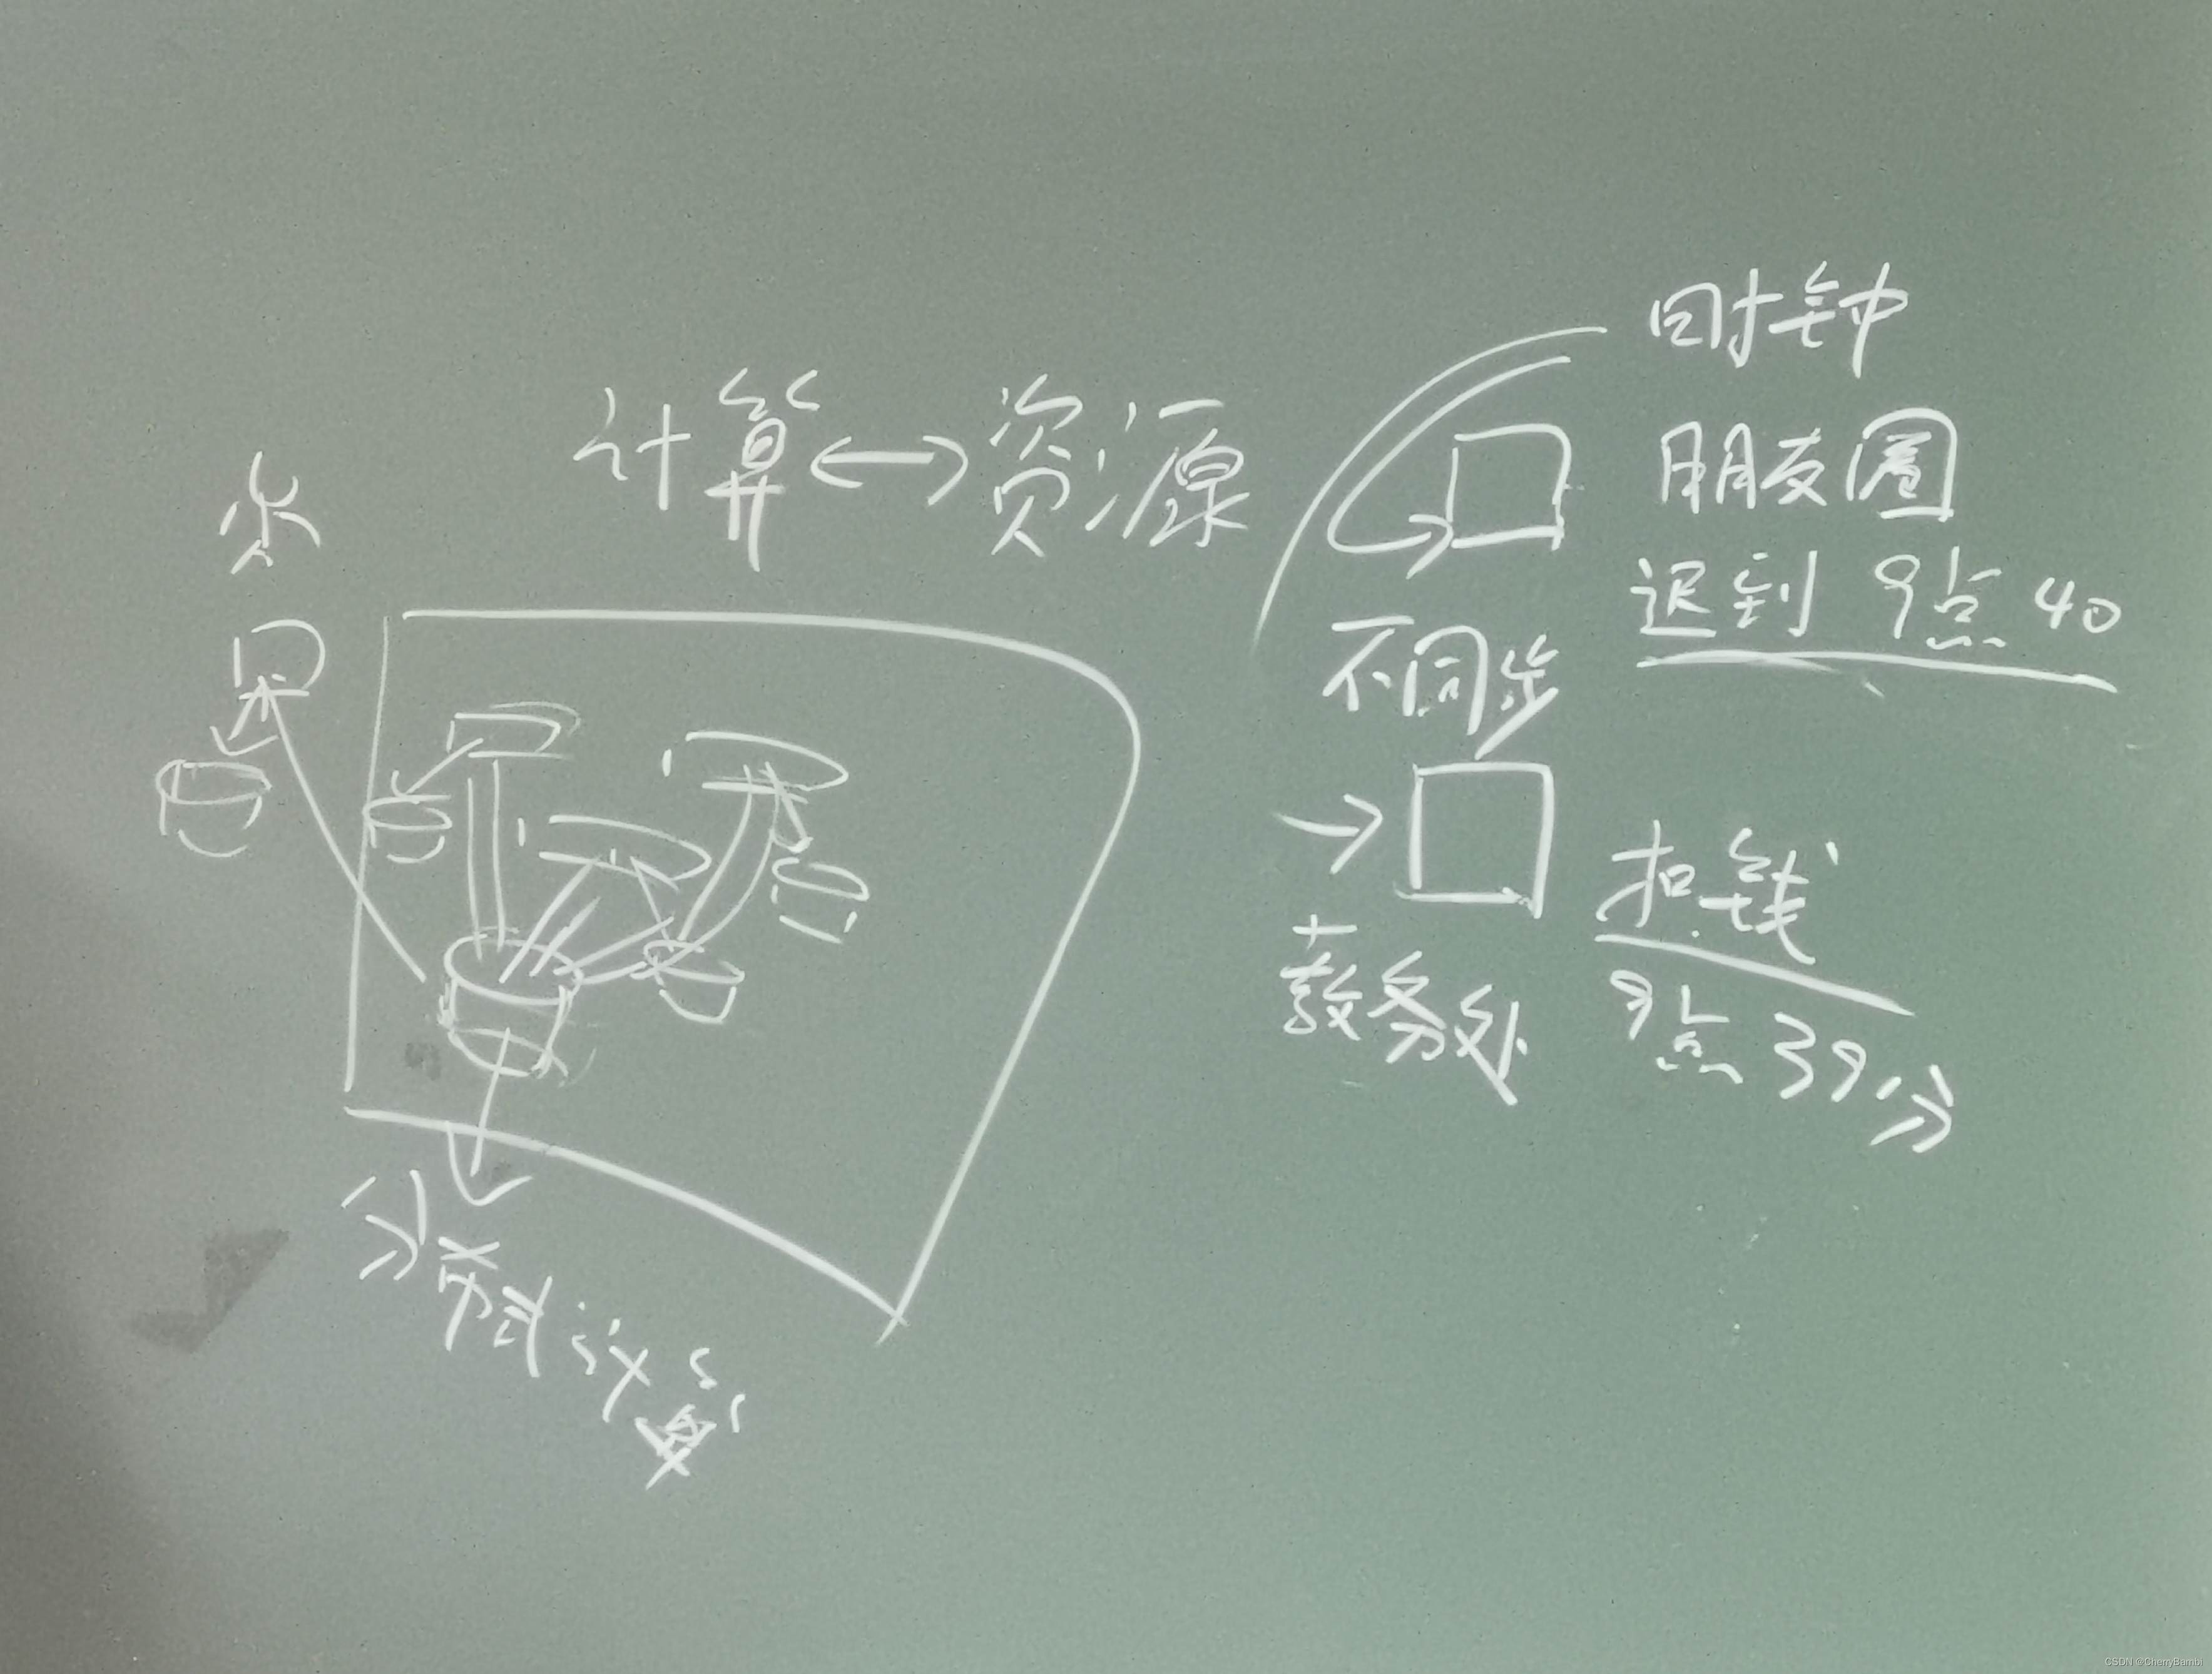 计算↔资源
分布式计算
时钟
朋友圈
迟到 9点40
不同步
扣钱
教务处
9点39分
CSDN @CherryBambi